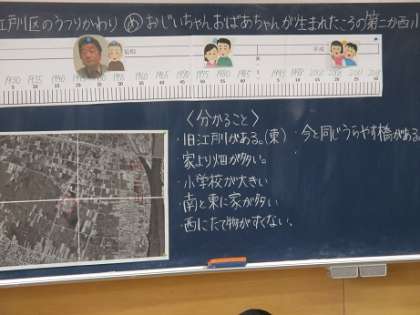 江戸川区のうつりかわり め おじいちゃんおばあちゃんが生まれたころの第二西川
昭和 平成
1930 1935 1940 1945 1950 1955 1960 1965 1970 1975 1980 1985 1990 1995 2000 2005 2010
<分かること>
・旧江戸川がある。(東)
・今と同じうらやす橋がある。
・家より畑が多い。
・小学校が大きい
・南と東に家が多い
・西にたて物がすくない。